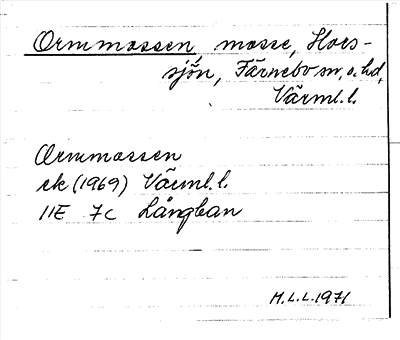 Ormmossen, mosse, Hors-
sjön, Färnebo sn, o. hd,
Värml. l.
Ormmossen
ek (1969) Värml. l.
11E 7c Långban
H.L.L. 1971